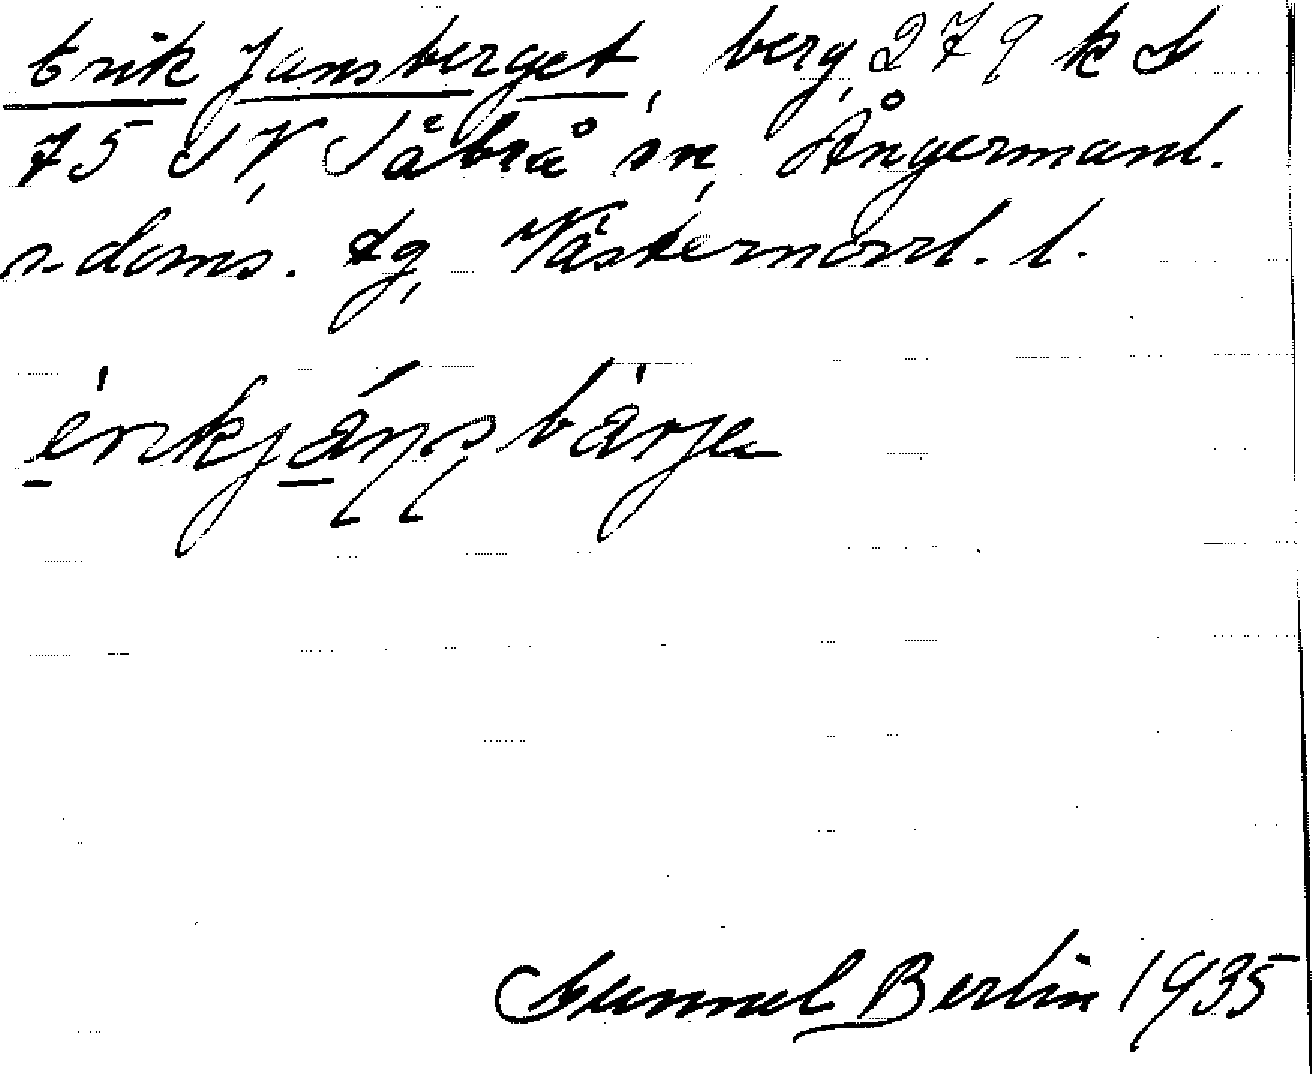 Erik Jansberget, berg, 279 k S
75 SV, Säbrå sn, Ångermanl.
s. doms. tg, Västernorrl. l.
érikjáṇṣbàrje
Gunnel Berlin 1935